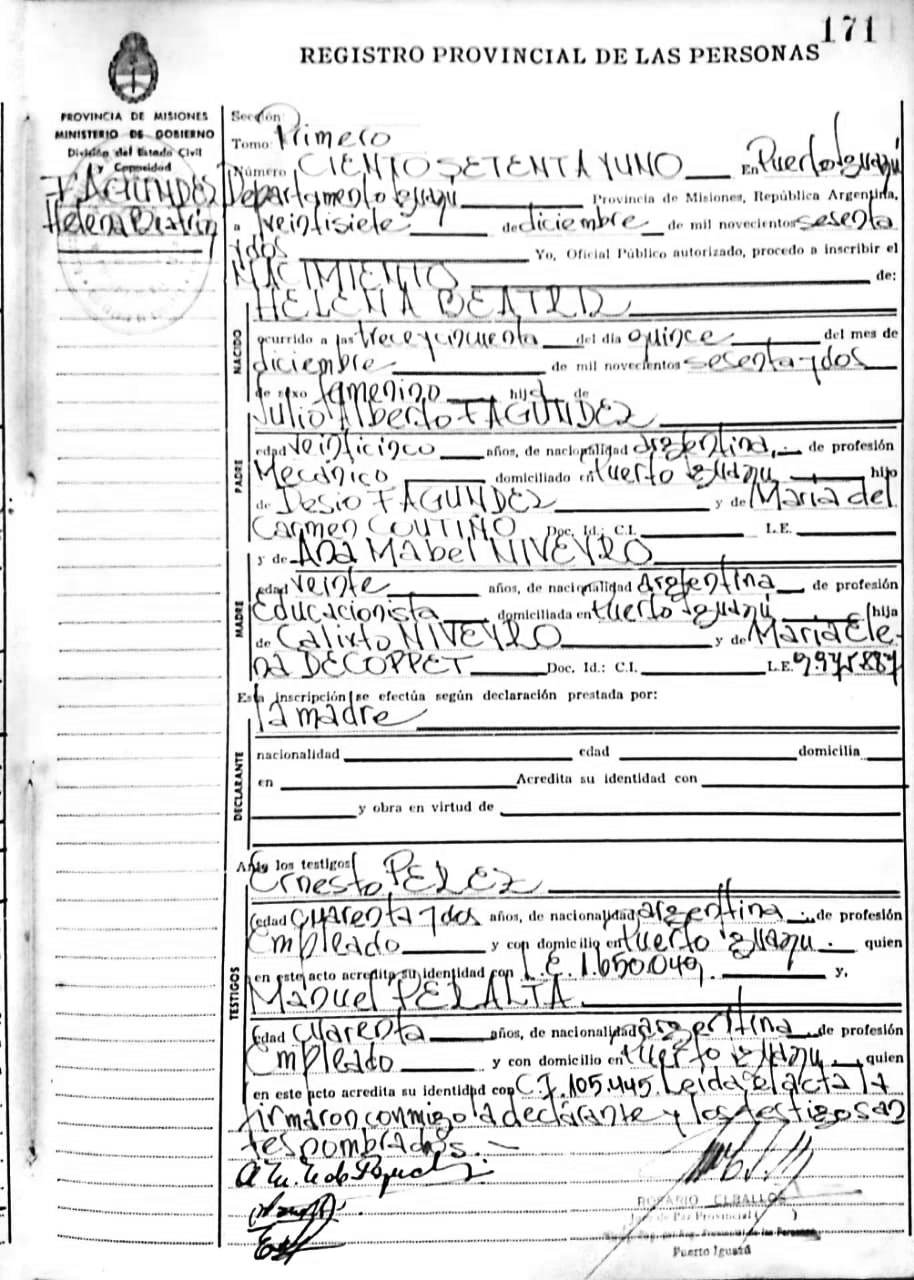 171
REGISTRO PROVINCIAL DE LAS PERSONAS
PROVINCIA DE MISIONES
MINISTERIO DE GOBIERNO
División del Estado Civil
y Capacidad
FAGUNDEZ
Helena Beatriz
Sección:
Tomo: Primero
Número CIENTO SETENTA Y UNO En Puerto Iguazú
Departamento Iguazú Provincia de Misiones, República Argentina,
a veintisiete de diciembre de mil novecientos sesenta
y dos Yo, Oficial Público autorizado, procedo a inscribir el
NACIMIENTO de:
HELENA BEATRIZ
NACIDO
ocurrido a las trece y cincuenta del día quince del mes de
diciembre de mil novecientos sesenta y dos
de sexo femenino hija de
Julio Alberto FAGUNDEZ
PADRE
edad veinticinco años, de nacionalidad argentina, de profesión
Mecánico domiciliado en Puerto Iguazú hijo
de Desio FAGUNDEZ y de María del
Carmen COUTIÑO Doc. Id.: C.I. L.E.
y de Ana Mabel NIVEYRO
MADRE
edad veinte años, de nacionalidad Argentina de profesión
Educacionista domiciliada en Puerto Iguazú hija
de Calixto NIVEYRO y de María Ele-
na DECOPPET Doc. Id.: C.I. L.E. 9.975.887
Esta inscripción se efectúa según declaración prestada por:
la madre
DECLARANTE
nacionalidad edad domicilia
en Acredita su identidad con
y obra en virtud de
Ante los testigos
Ernesto PEREZ
TESTIGOS
edad cuarenta y dos años, de nacionalidad argentina de profesión
Empleado y con domicilio en Puerto Iguazú. quien
en este acto acredita su identidad con L.E. 1.650.049. y,
Manuel PERALTA
edad cuarenta años, de nacionalidad argentina de profesión
Empleado y con domicilio en Puerto Iguazú. quien
en este acto acredita su identidad con C.I. 105.445. Leida el acta la
firmaron conmigo la declarante y los testigos an
tes nombrados.-
ROSARIO CEBALLOS
Juez de Paz Provincial
Puerto Iguazú